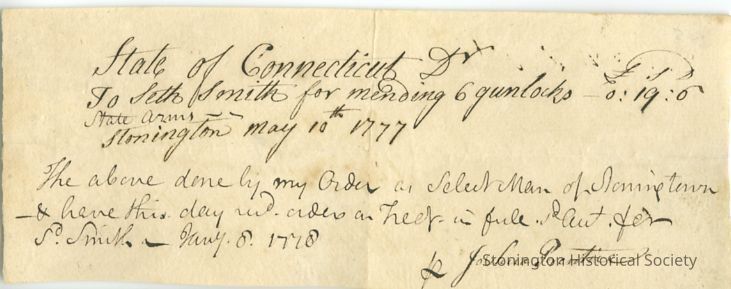 State of Connecticut Dr
£ S D
To Seth Smith for mending 6 gunlocks – 0: 19: 6
State Arms
Stonington may 10th 1777
The above done by my Order as Select Man of Stoningtown
– & have this day orders on in full
Sd. Smith – Jany. 8. 1778
Stonington Historical Society